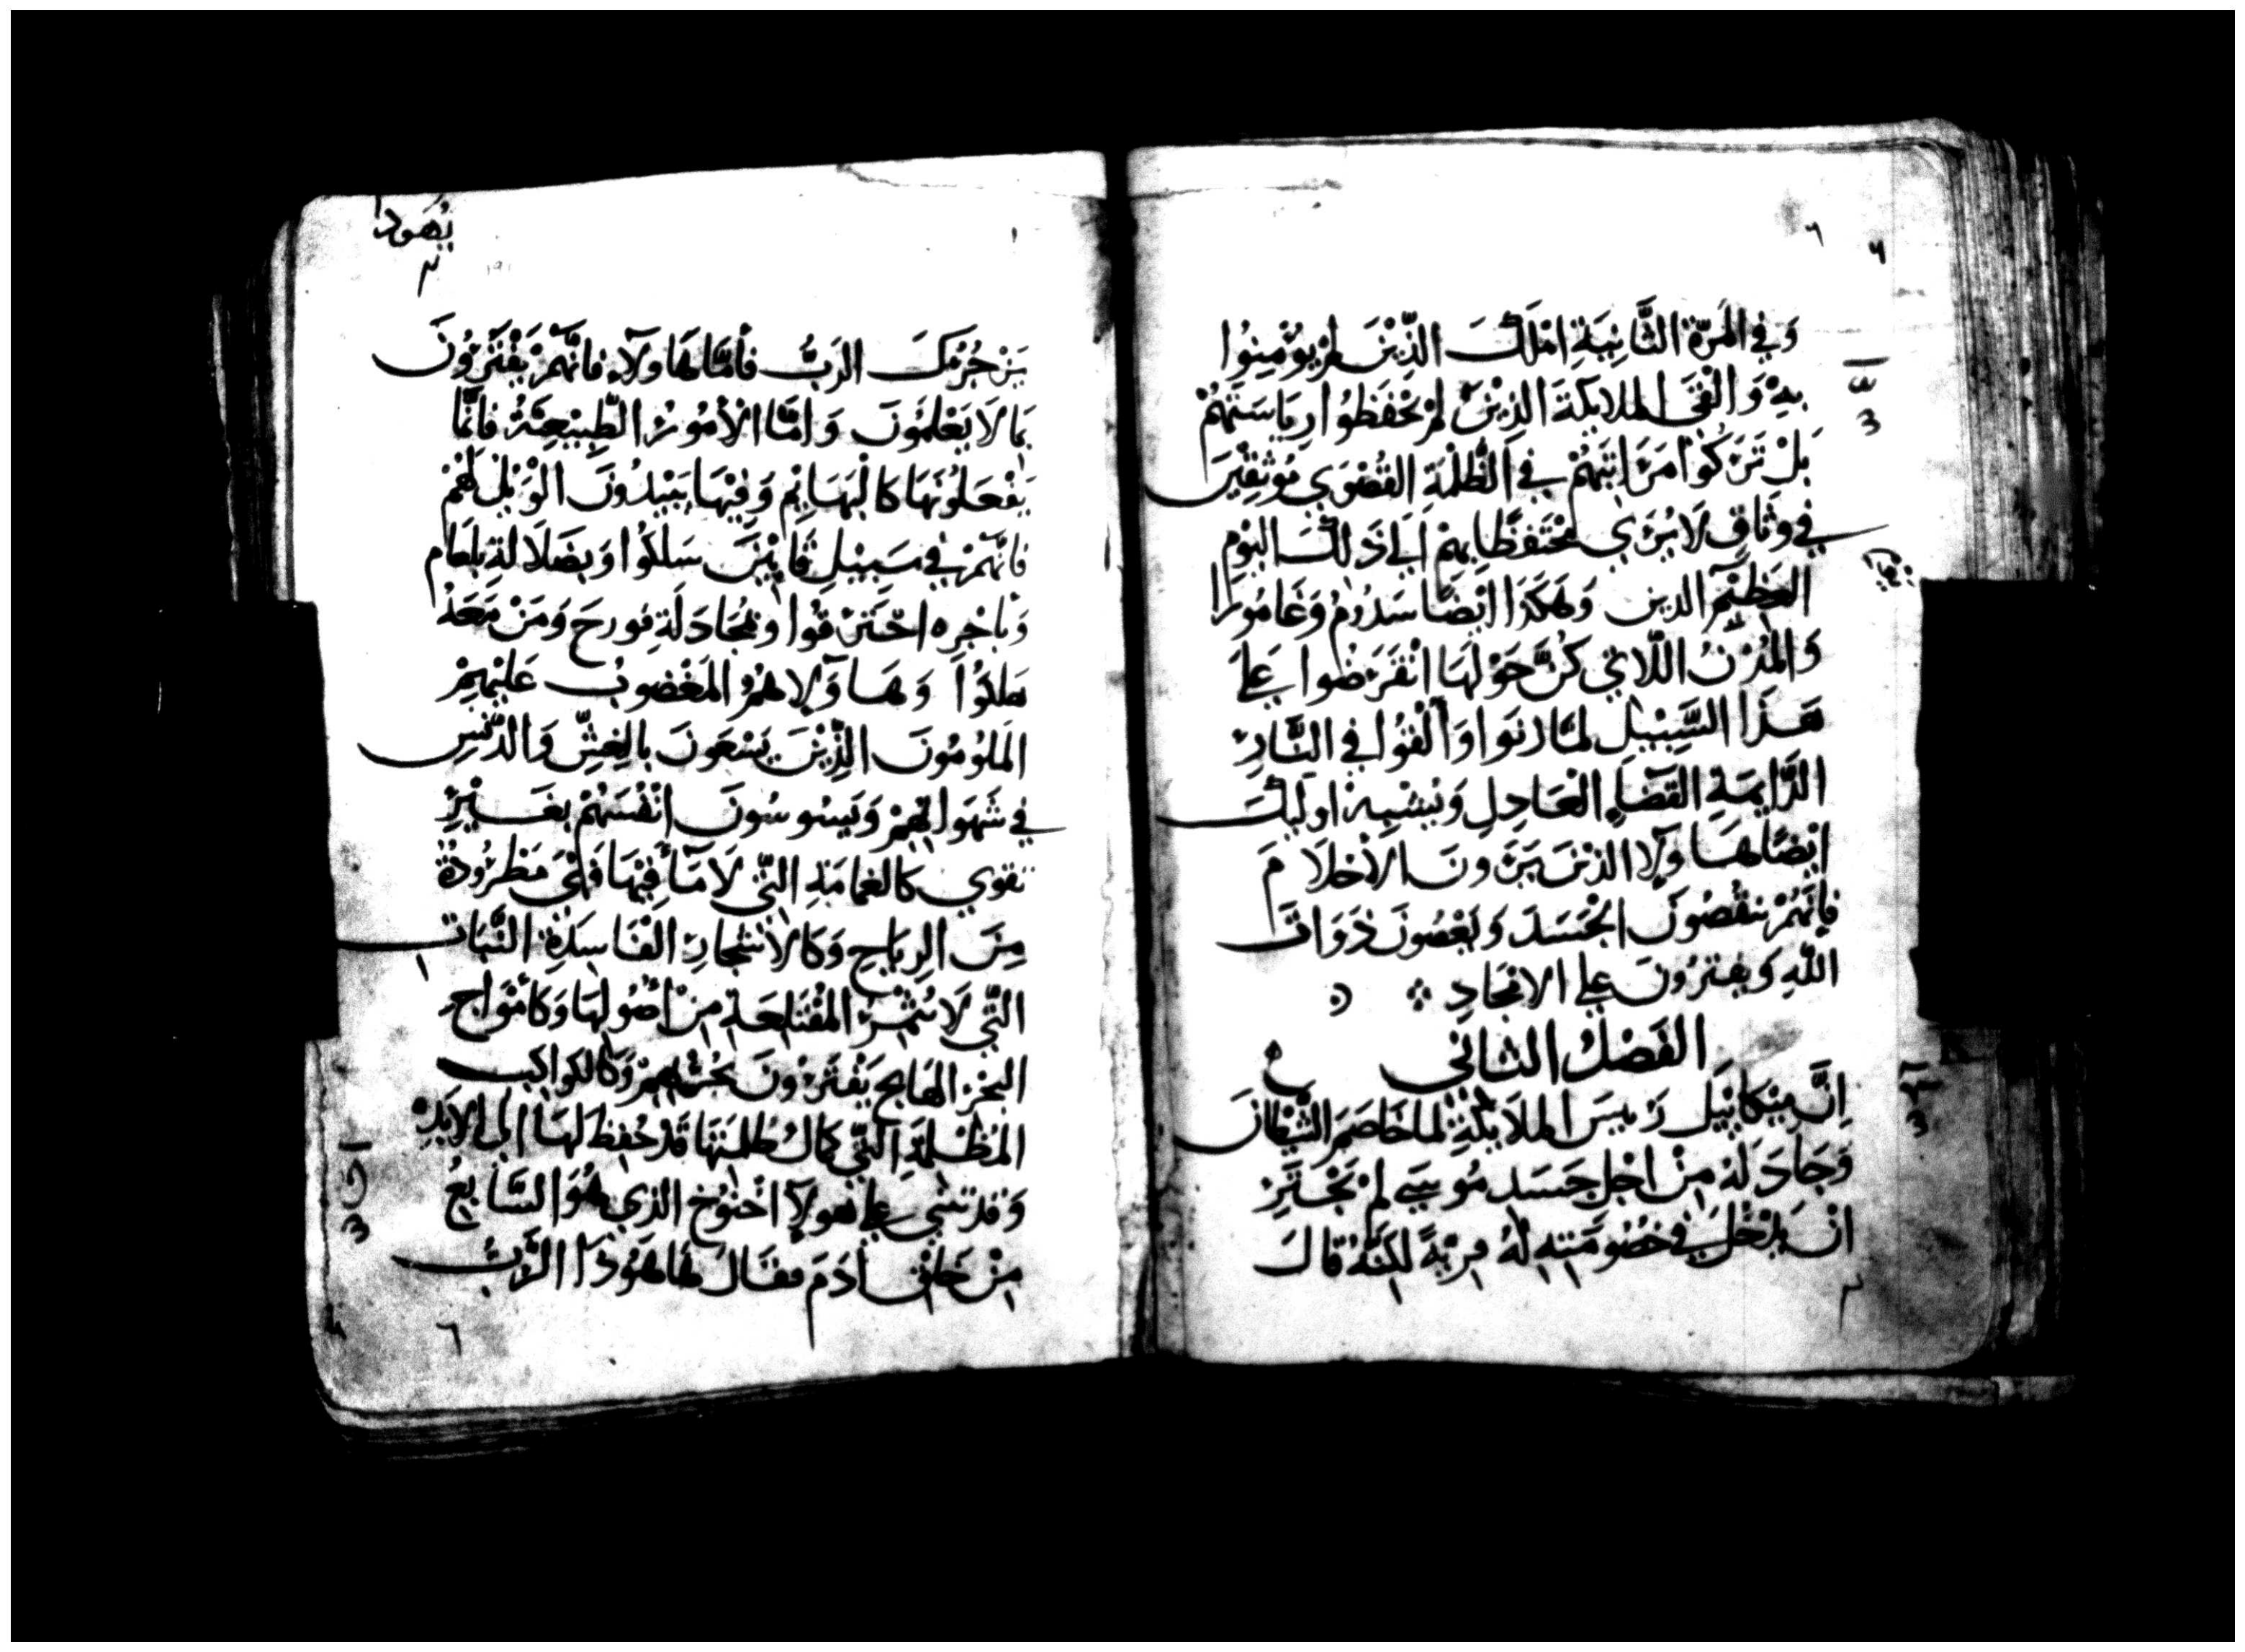 وَفِي المَرّة الثَّانِيَةِ اهْلَكَ الذِّيْنَ لَمْ يُوْمِنِوُا
بِهِ وَالْقَى الملايكة الذِيْنَ لَمْ يَحْفَظُوا رِيَاسَتَهُمْ
بَلْ تَرَكُوا مَرَاتِبَهُمْ فِي الظُلْمَةِ القُصْوَي مُوْثَقِيْنَ
فِي وَثَاقٍ لَا يُرَي مُحْتَفِظًا بِهِمْ اِلَي ذَلِكَ اليَوْم
العَظِيْمِ الدين وَهَكَذَا ايْضًا سَدُوْمُ وَغَامُوْرَا
وَالمُدُنُ اللّاتِي كُنَّ حَوْلَهَا انْقَرَضُوا عَلَي
هَذَا السَّبِيْلِ لمّا زنوا وَالْقُوا فِي النَّارِ
الدَّايِمَةِ القَضَاءِ العَادِلِ وَيُشْبِهُ اوليِكَ
ايْضًا هَاوَلَاءِ الذيْنَ يَرَوْنَ الأحْلَامَ
فَاِنَّهُمْ ينقُصُوْنَ الْجَسَدَ وَيَعْصُونَ ذَوَاتَ
اللّٰهِ وَيفترُونَ علي الامْجَادِ
الفَصْلُ الثانِي
اِنَّ مِيْكَايِيَل رَييسَ الملَايكَةِ لمَا خَاصَمَ الشَيْطَانَ
وَجَادَلَهُ مِنْ اجْلِ جَسَدِ مُوسَي لَمْ يَجْتَرِ
انْ يدْخُلَ فِي خُصُومَتِهِ لَهُ فِرْيَةً لكِنَّهُ قَالَ
يهودا
يَزْجُرُكَ الرَبُّ فَأمَّا هَاوَلَاءِ فَانَّهُمْ يَفْتَرُوْنَ
بِمَا لَا يَعْلَمُوْنَ وَامَّا الأمُوْرُ الطَّبِيْعِيَّةُ فَاِنَّمَا
يَفْعَلُوْنَهَا كَالْبَهَايِم وَفِيْهَا يَبِيْدُوْنَ الوَيْلُ لَهُمْ
فَانَّهُمْ فِي سَبِيْلِ قَايِيْنَ سَلَكُوا وَبِضَلَالةِ بلعام
وَبِاجْرِه احْتَرَقُوا وَبمُجَادَلَةِ قورحَ وَمَنْ مَعَهُ
هَلَكُوْا وَهَاوَلاءِ هُمُ المَغْضُوبُ عَلَيْهِمْ
المَلُومُونَ الذِّيْنَ يَسْعَونَ بالغِشِّ وَالدَّنَسِ
فِي شَهَوَاتِهِمْ وَيَسُوسُونَ انْفُسَهُمْ بِغَيْرِ
تقوي كالغمامَةِ التِّي لَا مَآءَ فِيْهَا فَهِيَ مَطْرُودَة
مِنَ الرِيَاحِ وَكَالاشْجَارِ الفَاسِدَةِ النَّبَاتِ
التِّي لَا تُثْمِرُ المُقْتَلعَةِ مِنْ اصُولِهَا وَكَأمْوَاج
البَحْرِ الهَايجِ يَفْتَرُوْنَ بخزيهِمْ وَكالكواكب
المُظْلمَةِ التِّي كمَالُ ظُلمَتِهَا قَدْ حُفِظَ لَهَا الي الابَدِ
وَقدْ تنبي علي هولَاءِ اخْنُوْخ الذي هُوَ السَّابِعُ
مِنْ خَلْفِ ادَمَ فقالَ هَا هَوُذَا الرَّبُّ